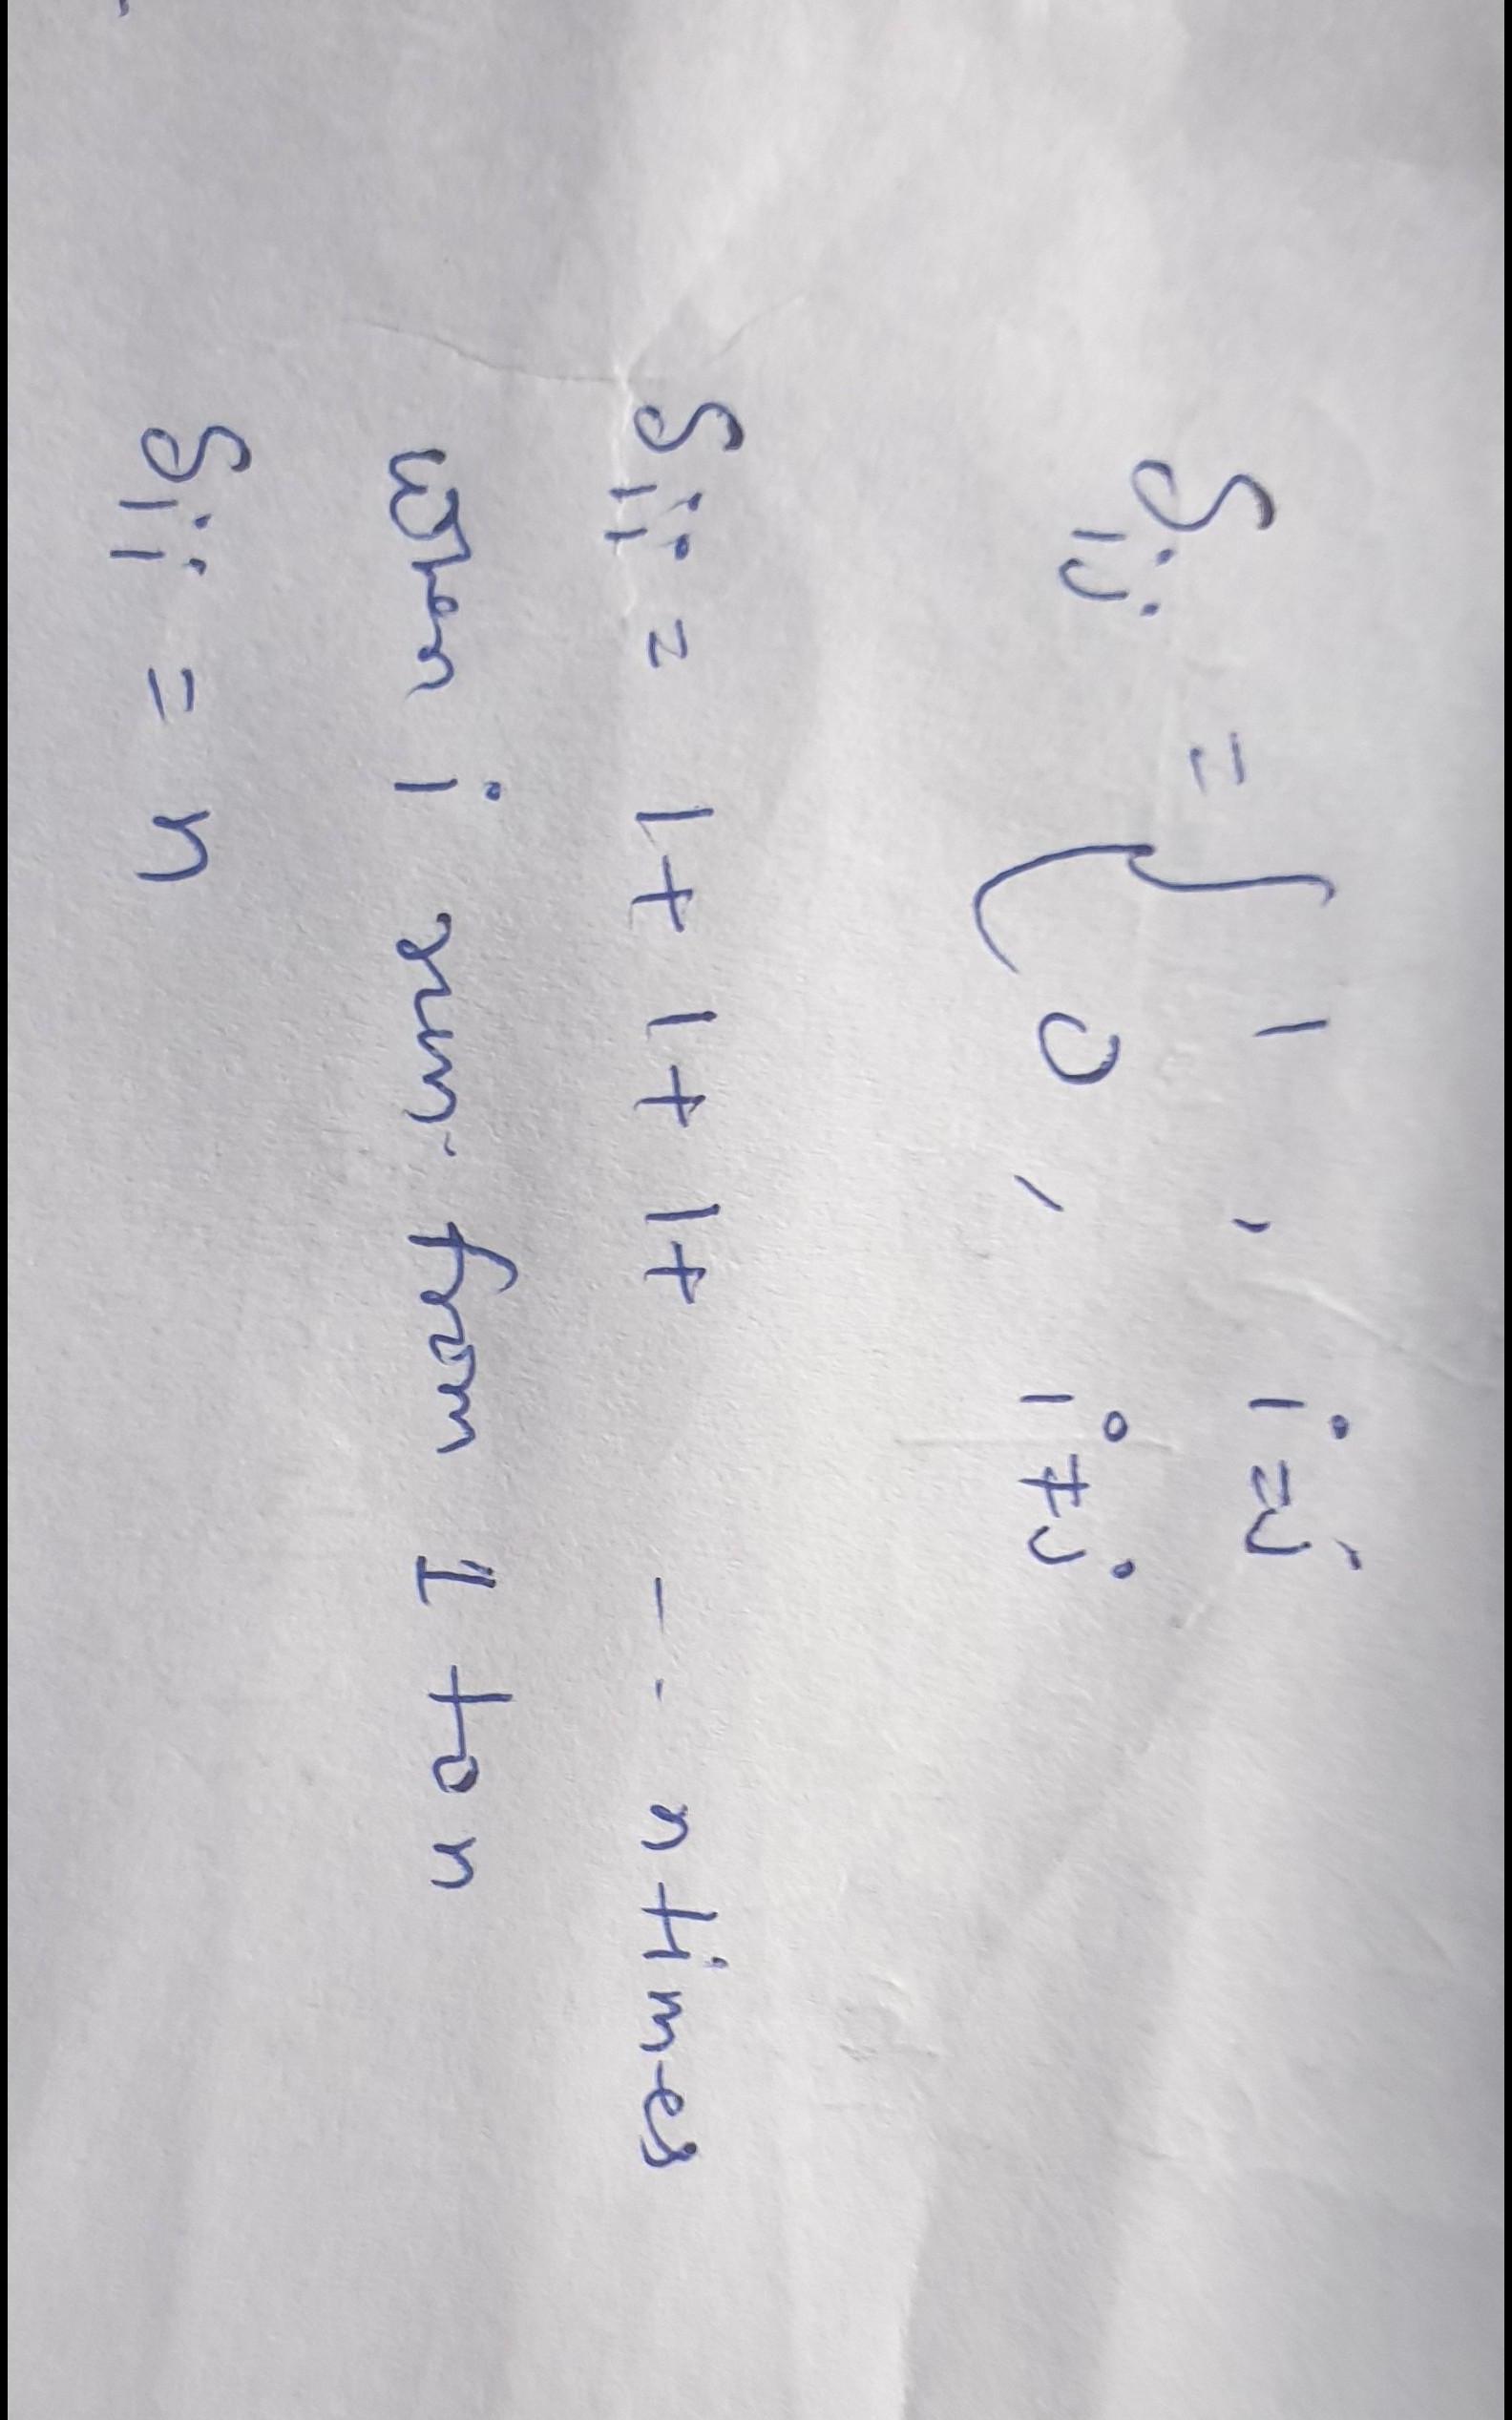 δij = { 1 , i = j
0 , i ≠ j
δii = 1+ 1+ 1+ -- n times
when i run from 1 to n
δii = n